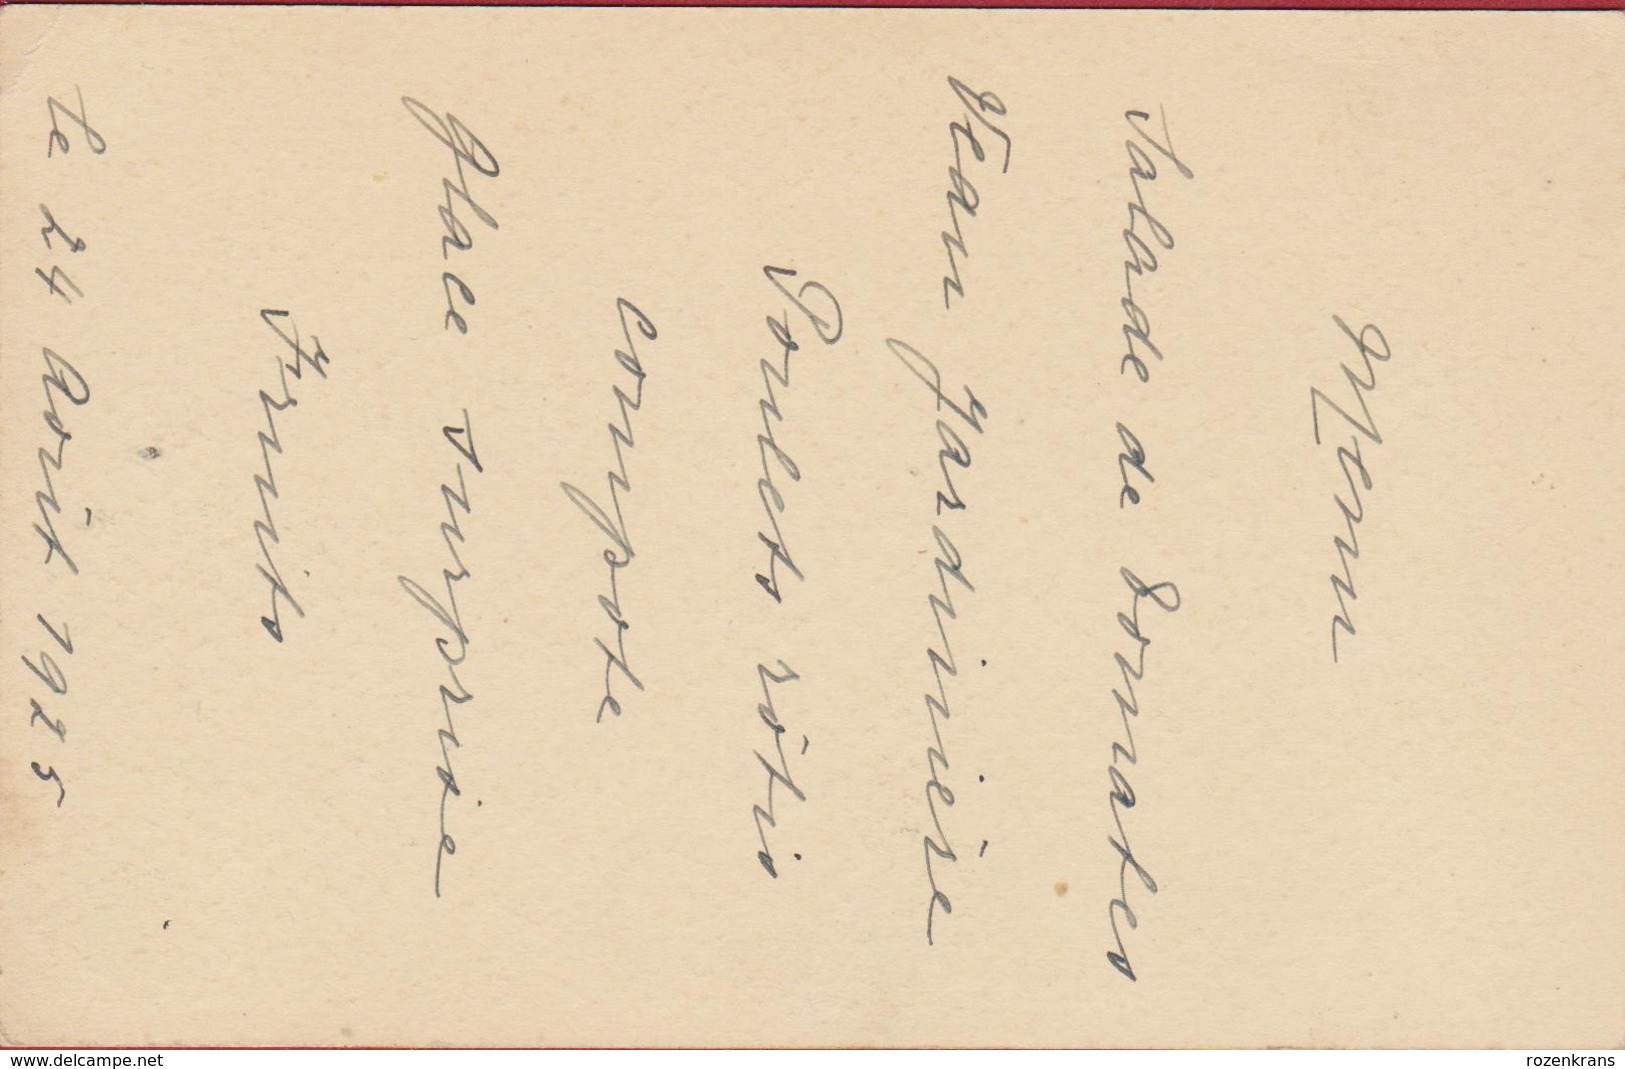 Menu
Salade de Tomates
Veau Jardinière
Poulets rôtis
compote
Glace surprise
Fruits
Le 24 Août 1925
www.delcampe.net
rozenkrans